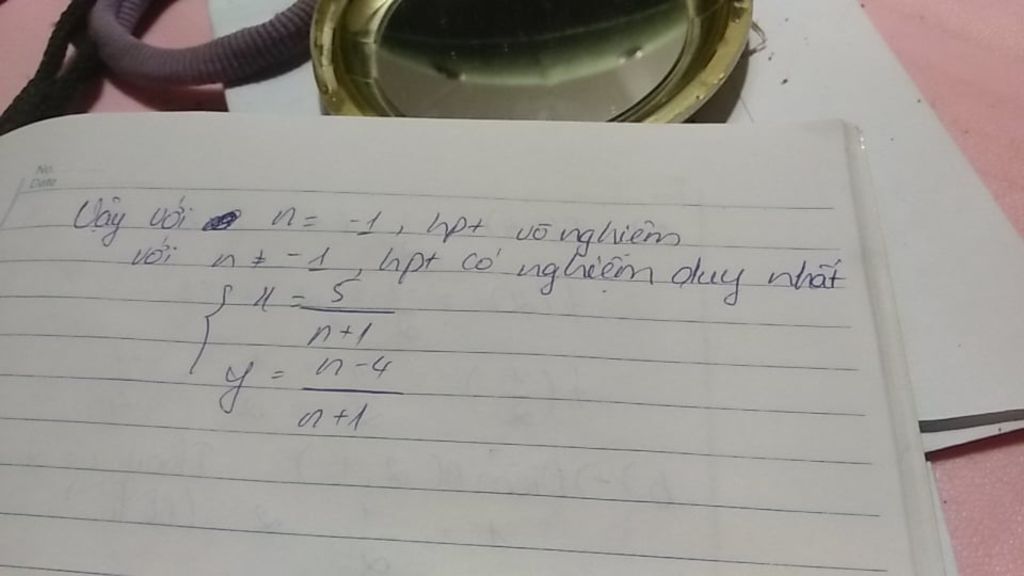 No.
Date
Vậy với n = -1, hpt vô nghiệm
với n ≠ -1, hpt có nghiệm duy nhất
{ x = 5
n+1
y = n-4
n+1